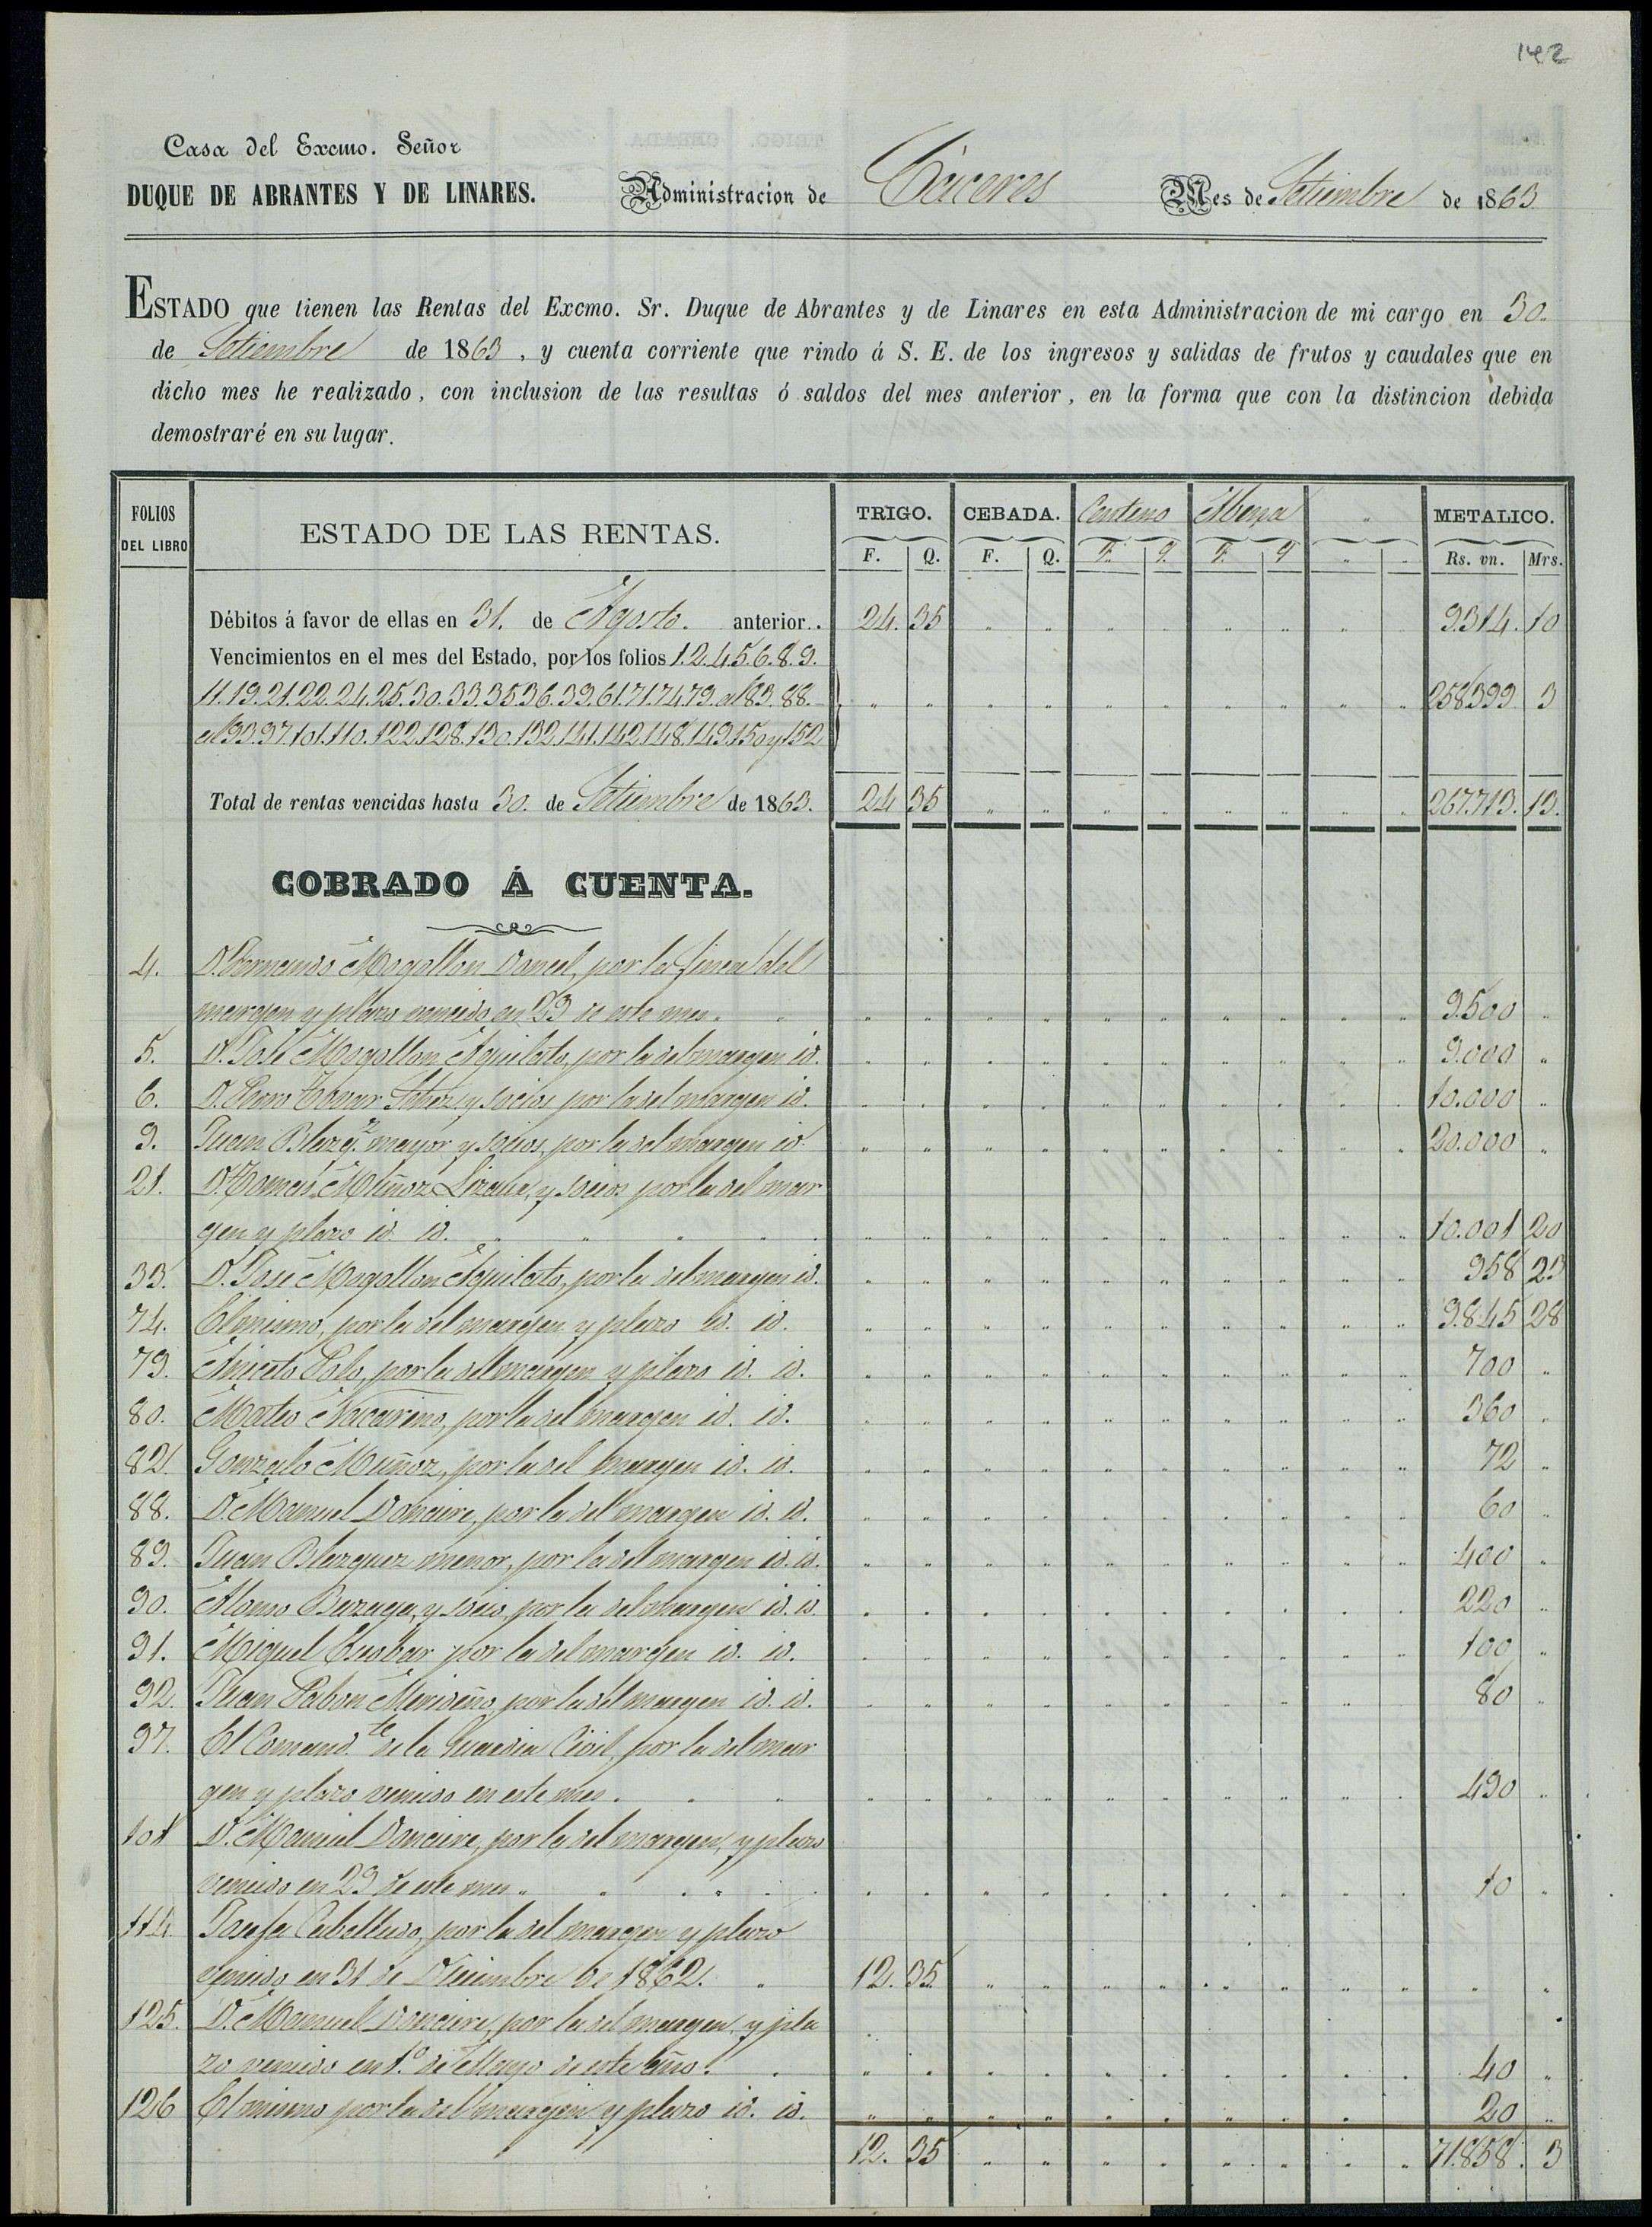 142
Casa del Excmo. Señor
DUQUE DE ABRANTES Y DE LINARES. Administracion de Cáceres Mes de Setiembre de 1863
ESTADO que tienen las Rentas del Excmo. Sr. Duque de Abrantes y de Linares en esta Administracion de mi cargo en 30.
de Setiembre de 1863, y cuenta corriente que rindo á S. E. de los ingresos y salidas de frutos y caudales que en
dicho mes he realizado, con inclusion de las resultas ó saldos del mes anterior, en la forma que con la distincion debida
demostraré en su lugar.
FOLIOS DEL LIBRO ESTADO DE LAS RENTAS. TRIGO. CEBADA. Centeno Abena METALICO.
F. Q. F. Q. F. Q. F. Q. Rs. vn. Mrs.
Débitos á favor de ellas en 31. de Agosto. anterior.. 24. 35 9314. 10
Vencimientos en el mes del Estado, por los folios 1.2.4.5.6.8.9.
11.19.21.22.24.25.30.33.35.36.39.61.71.74.79. al 83. 88. 258399 3
al 93.97.101.110.122.128.130.132.141.142.148.149.150 y 152
Total de rentas vencidas hasta 30. de Setiembre de 1863. 24 35 267.713. 13.
COBRADO Á CUENTA.
4. D. Fernando Mogollon Doncel, por la finca del
margen y plazo vencido en 29 de este mes. 9.500
5. D. José Mogollon Aguilato, por la del margen id. 9.000
6. D. Pedro Tovar Schez y socios por la del margen id. 10.000
9. Juan Blazqz mayor y socios, por la del margen id. 20.000
21. D. Francisco Muñoz Lizaur, y socios por la del mar
gen y plazo id id. 10.001 20
33. D. José Mogollon Aguilato, por la del margen id. 958 23
74. El mismo, por la del margen y plazo id. id. 9.845 28
79. Aniceto Polo, por la del margen y plazo id. id. 700
80. Mateo Nacarino, por la del margen id. id. 360
82. Gonzalo Muñoz, por la del margen id. id. 72
88. D. Manuel Doncire, por la del margen id. id. 60
89. Juan Blazquez menor, por la del margen id. id. 400
90. Alonso Bazaga, y socio, por la del margen id. id. 220
91. Miguel por la del margen id. id. 100
92. Juan Pabon Merideño, por la del margen id. id. 80
97. El Comandte de la Guardia Civil, por la del mar
gen y plazo vencido en este mes. 490
101 D. Manuel Doncire, por la del margen, y plazo
vencido en 29 de este mes. 10
114. Josefa Caballero, por la del margen y plazo
vencido en 31 de Diciembre de 1862. 12. 35
125. D. Manuel Doncire, por la del margen, y pla
zo vencido en 1.º de Mayo de este año. 40
126 El mismo por la del margen y plazo id. id. 20
12. 35 71.858. 3